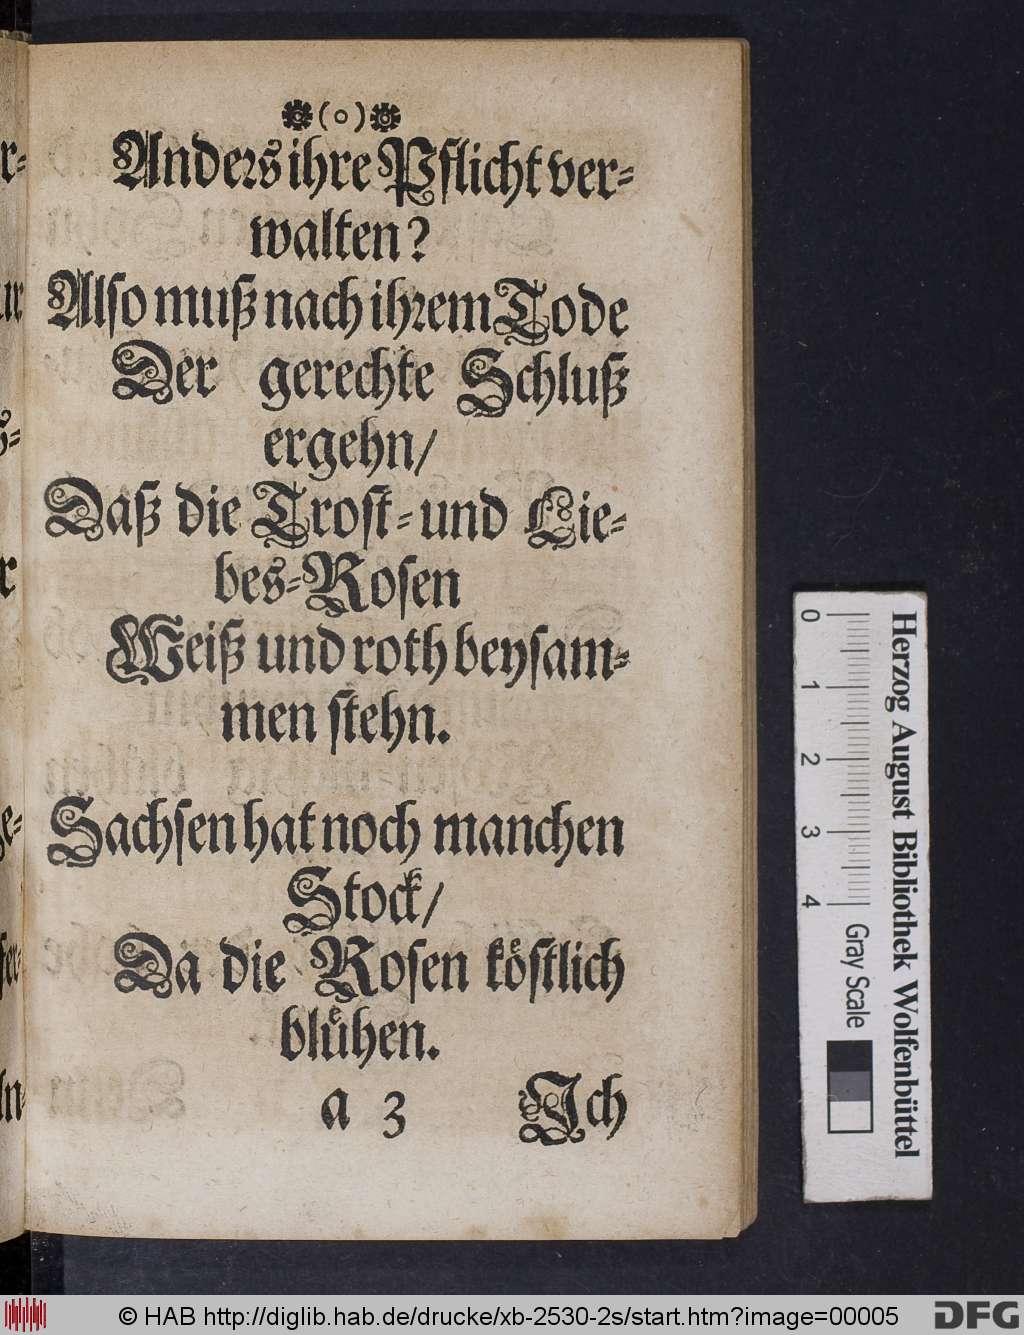 (o)
Anders ihre Pflicht ver-
walten?
Also muß nach ihrem Tode
Der gerechte Schluß
ergehn/
Daß die Trost- und Lie-
bes-Rosen
Weiß und roth beysam-
men stehn.
Sachsen hat noch manchen
Stock/
Da die Rosen koͤstlich
bluͤhen.
a 3 Ich
0 1 2 3 4
Gray Scale
Herzog August Bibliothek Wolfenbüttel
© HAB http://diglib.hab.de/drucke/xb-2530-2s/start.htm?image=00005
DFG